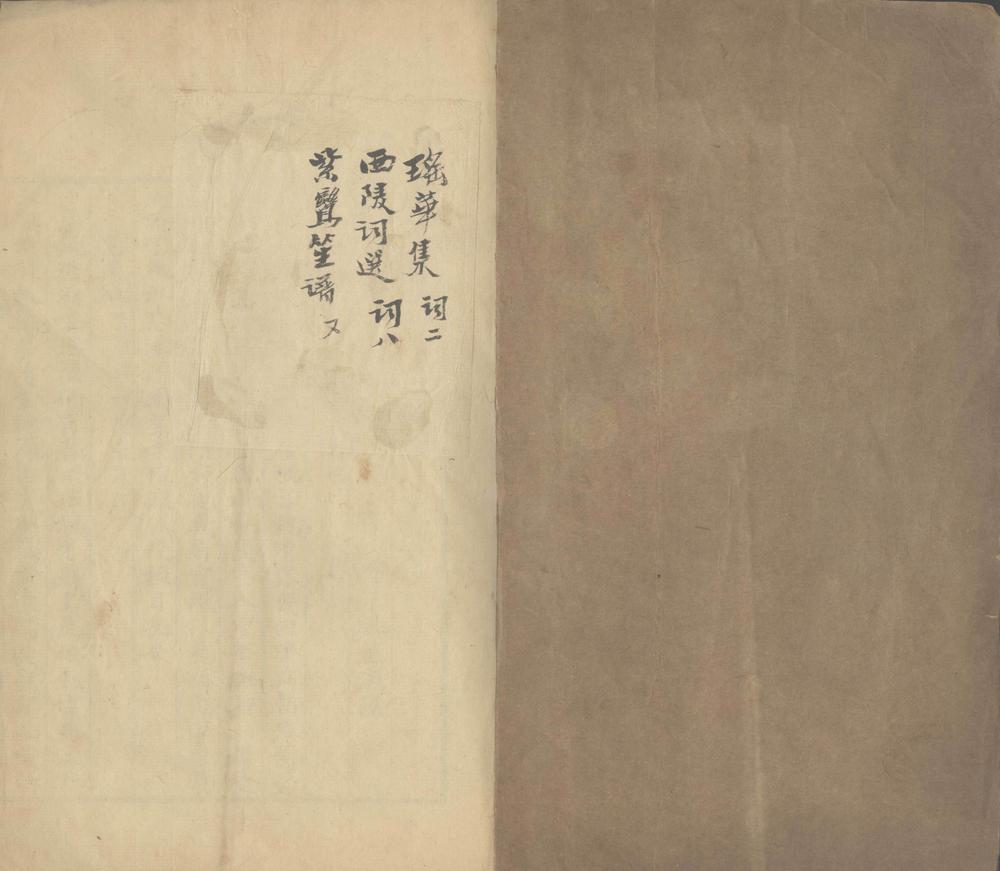 瑤華集 词二
西陵词選 词八
紫鸞笙譜 又